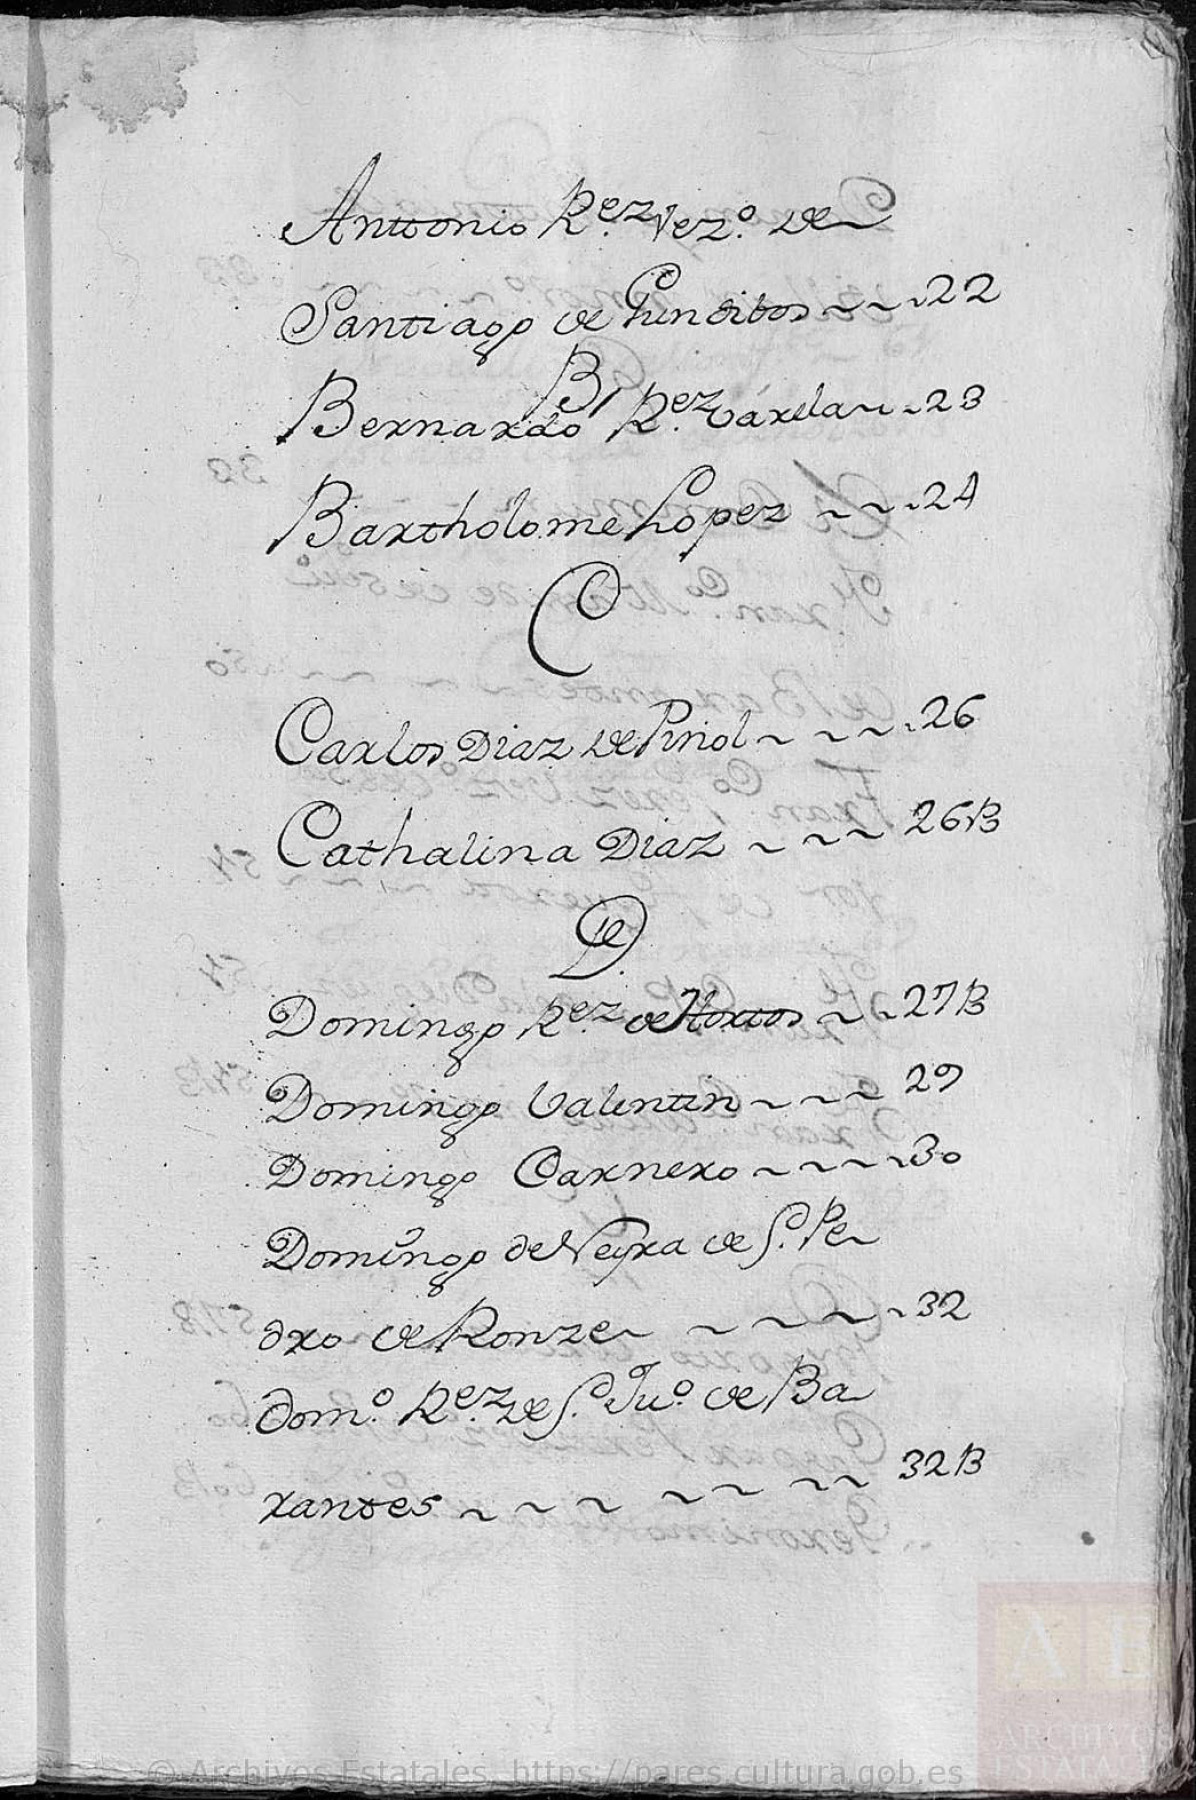 Anttonio R.ez Vez.o de
Santiago de Gunditos 22
B
Bernardo R.ez Varela 23
Bartholome Lopez 24
C
Carlos Diaz de Piñol 26
Cathalina Diaz 26B
D
Domingo R.ez de Hortos 27B
Domingo Valentin 29
Domingo Carnero 30
Domingo de Neyra de S.n Pe
dro de Ronze 32
dom.o R.ez de S.n Ju.o de Ba
rantes 32B
© Archivos Estatales, https://pares.cultura.gob.es
AE
ARCHIVOS
ESTATA